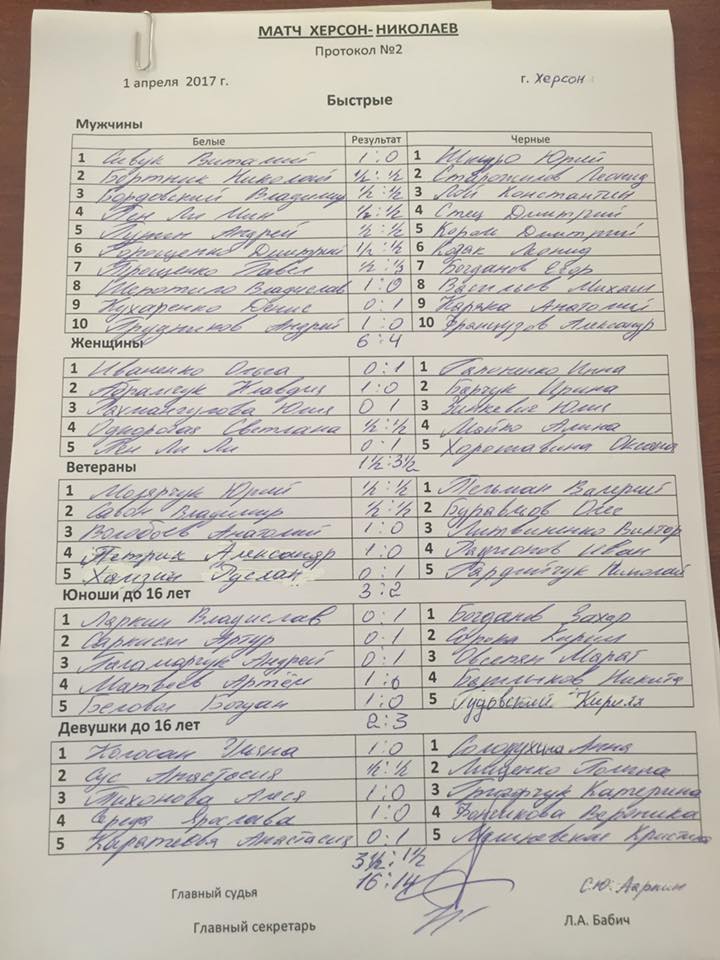 МАТЧ ХЕРСОН-НИКОЛАЕВ
Протокол №2
1 апреля 2017 г. г. Херсон
Быстрые
Мужчины
Белые Результат Черные
1 Сивук Виталий 1:0 1 Юрий
2 Бортник Николай ½:½ 2 Старожилов Леонид
3 Бордовский Владимир ½:½ 3 Лой Константин
4 Пен Ли Мин ½:½ 4 Стец Дмитрий
5 Андрей ½:½ 5 Король Дмитрий
6 Горощенко Дмитрий ½:½ 6 Козак Леонид
7 Трощенко Павел ½:½ 7 Богданов Егор
8 Шепотило Владислав 1:0 8 Васильев Михаил
9 Кухаренко Денис 0:1 9 Каряка Анатолий
10 Прудников Андрей 1:0 10 Французов Александр
6:4
Женщины
1 Иваненко Ольга 0:1 1 Гапоненко Инна
2 Абрамчук Клавдия 1:0 2 Барчук Ирина
3 Рахмангулова Юлия 0 1 3 Зинкевич Юлия
4 Светлана ½:½ 4 Мацко Алина
5 Пен Ли Ли 0:1 5 Хорошавина Оксана
1½:3½
Ветераны
1 Молярчук Юрий ½:½ 1 Тельман Валерий
2 Савон Владимир ½:½ 2 Олег
3 Волобоев Анатолий 1:0 3 Литвиненко Виктор
4 Петрих Александр 1:0 4 Иван
5 Руслан 0:1 5 Гардийчук Николай
3:2
Юноши до 16 лет
1 Ларкин Владислав 0:1 1 Богданов Захар
2 Саркисян Артур 0:1 2 Кирилл
3 Паламарчук Андрей 0:1 3 Овсепян Марат
4 Матвеев Артём 1:0 4 Никита
5 Беловол Богдан 1:0 5 Гудовский Кирилл
2:3
Девушки до 16 лет
1 Уляна 1:0 1 Солодухина Анна
2 Сус Анастасия ½:½ 2 Лященко Полина
3 Тихонова Алися 1:0 3 Катерина
4 Середа Ярослава 1:0 4 Вероника
5 Анастасия 0:1 5 Кристина
3½:1½
16:14
Главный судья С.Ю. Ларкин
Главный секретарь Л.А. Бабич